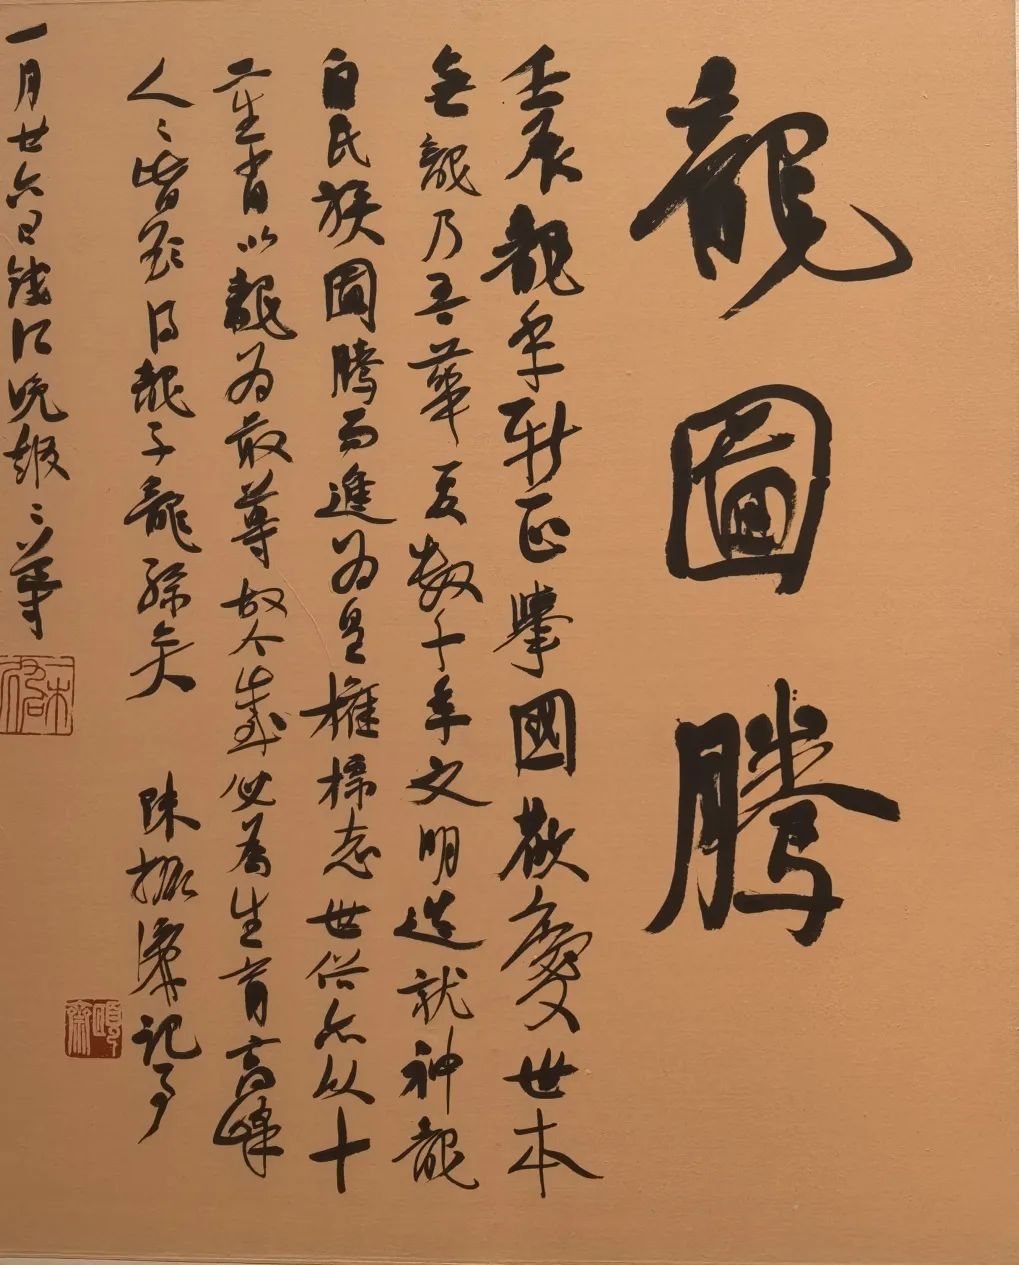 龍圖騰
壬辰龍年新正舉國歡慶世本
無龍乃吾華夏數千年文明造就神龍
自民族圖騰而進為皇權標志世俗亦以十
二生肖以龍為最尊故今歲必為生育高峰
人〻皆欲得龍子龍孫矣 陳振濂記事
一月廿六日錢江晚報〻導